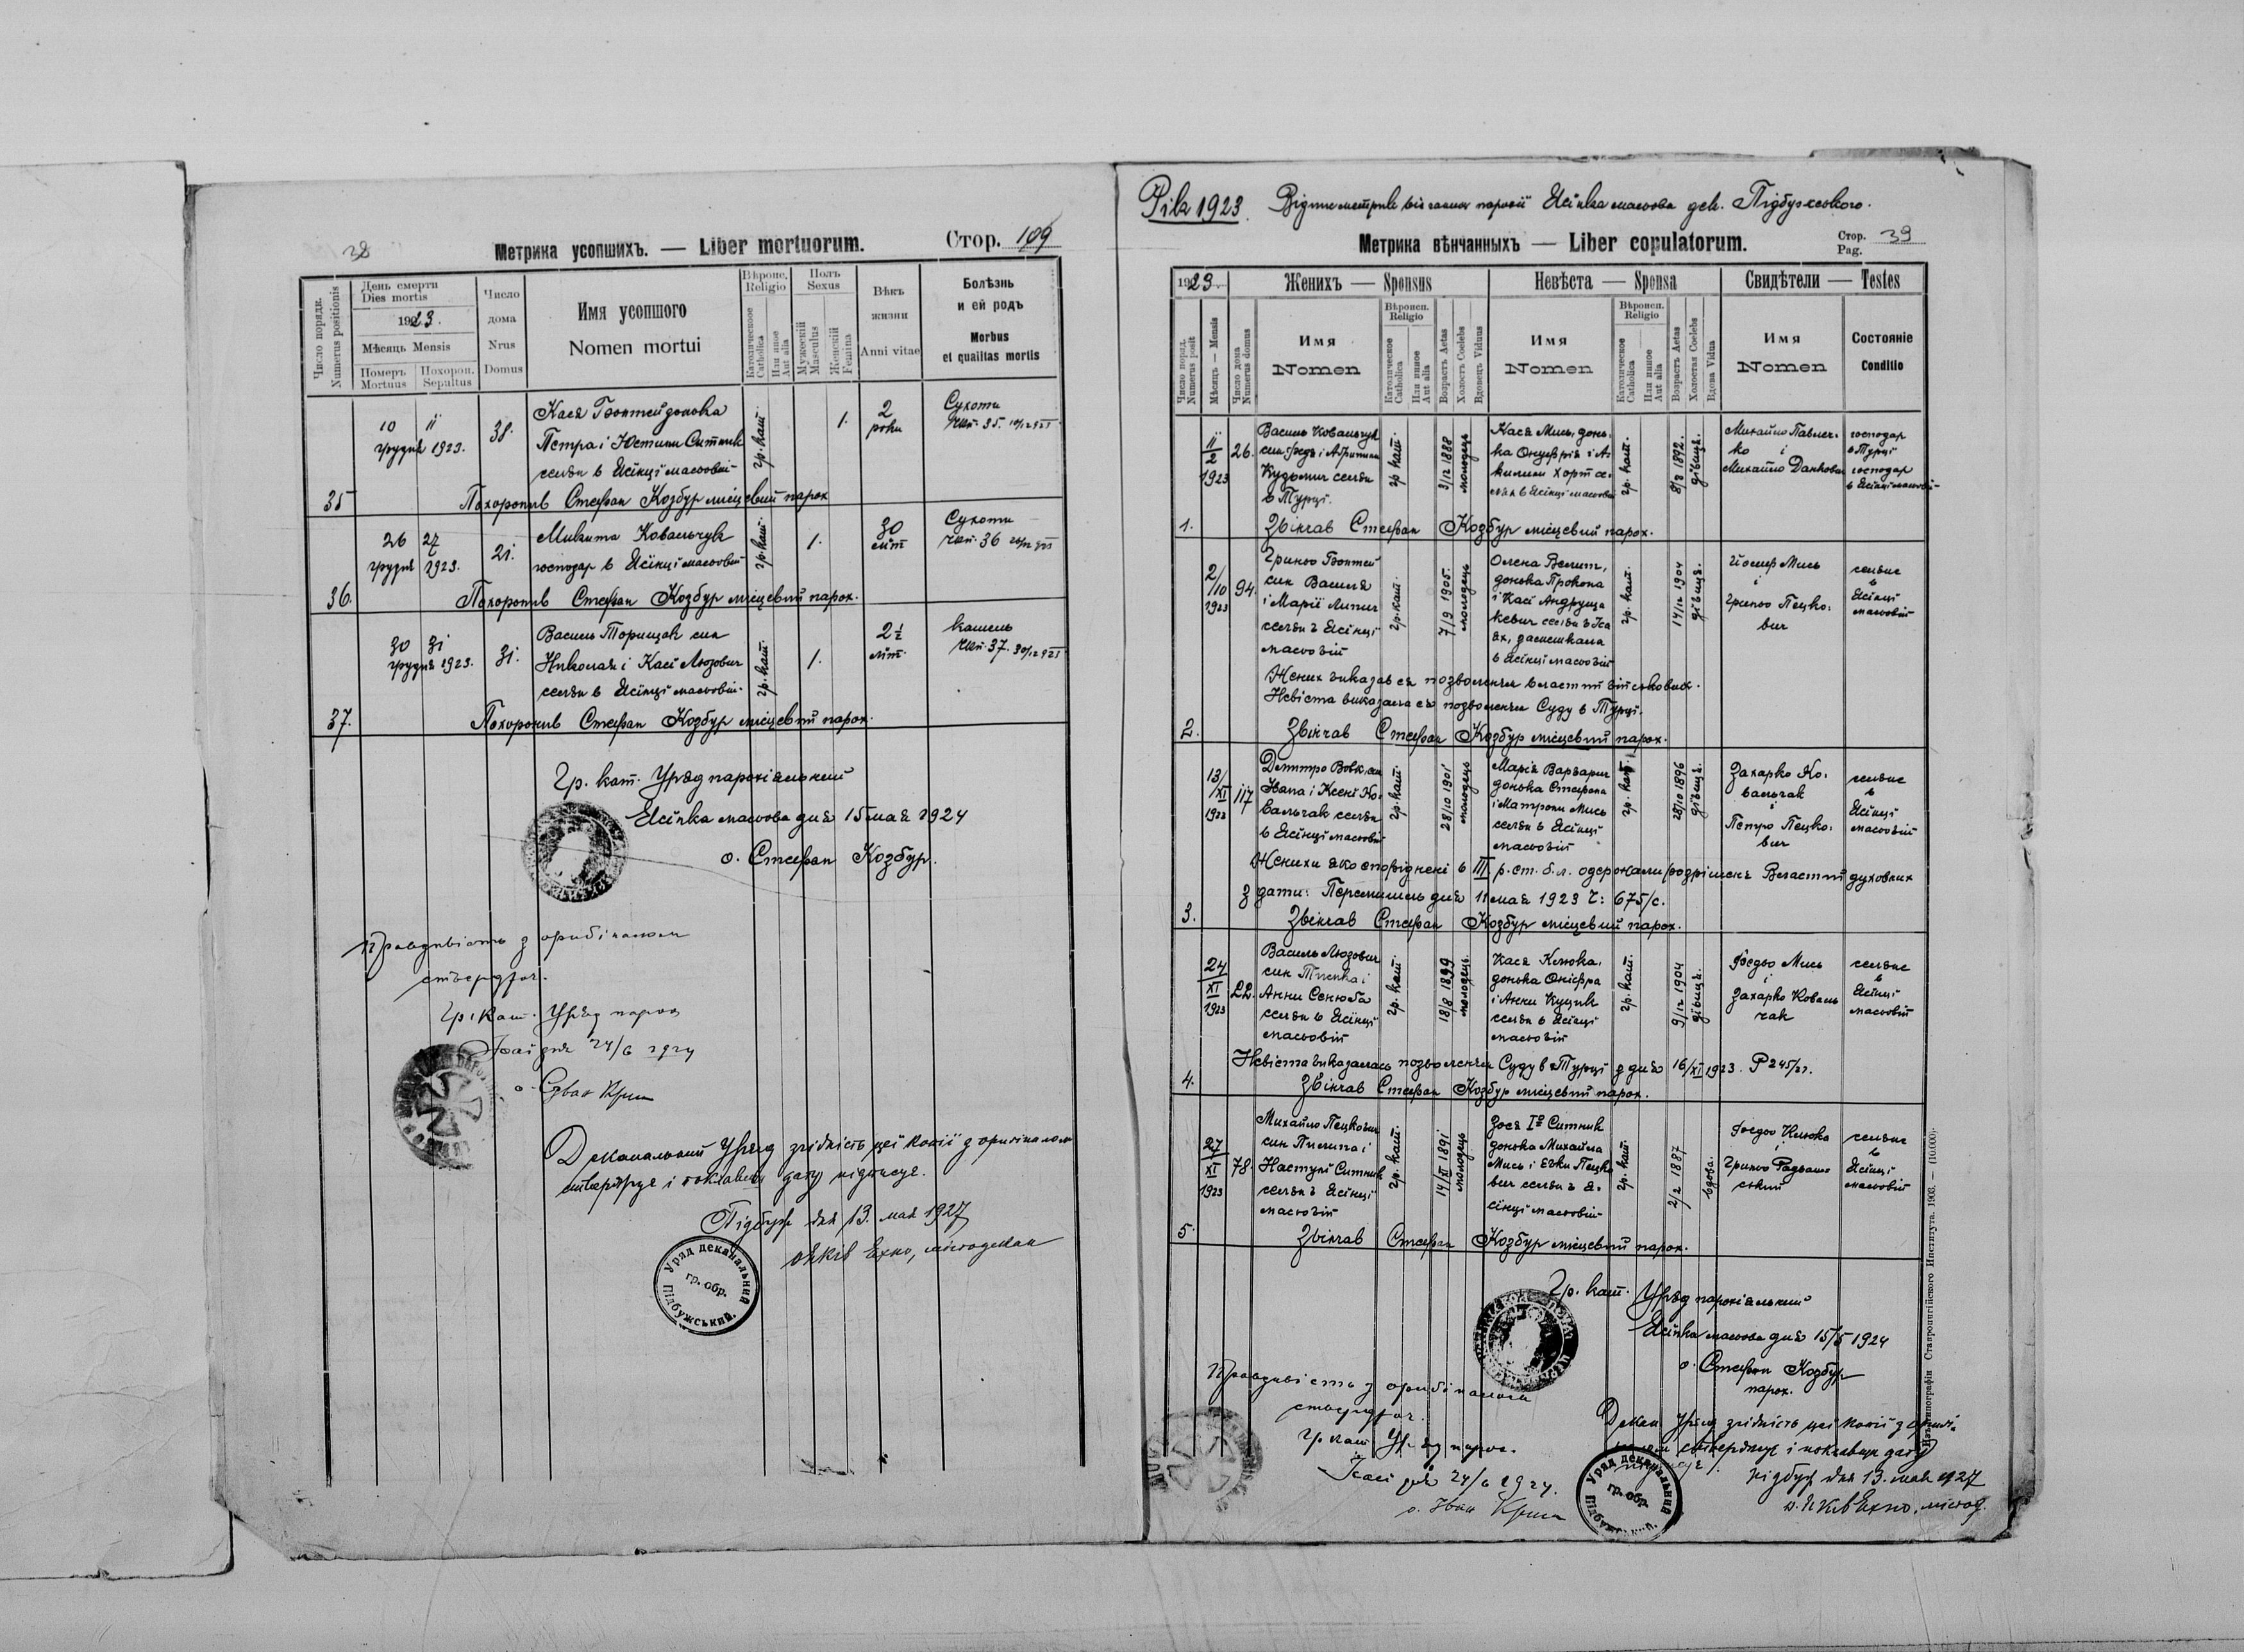 38
Метрика усопшихъ. — Liber mortuorum.
Стор. 109
Число порядк. Numerus positionis
День смерти
Dies mortis
1923.
Мѣсяць Mensis
Померъ Mortuus
Похорон. Sepultus
Число
дома
Nrus
Domus
Имя усопшого
Nomen mortui
Вѣроис.
Religio
Католическое
Catholica
Или иное
Aut alia
Полъ
Sexus
Мужескій
Masculus
Женскій
Femina
Вѣкъ
жизни
Anni vitae
Болѣзнь
и ей родъ
Morbus
et qualitas mortis
10 11
грудня 1923.
38.
Кася Бонтей донька
Петра і Юстини Ситник
селян в Ясїнцї масьовій
гр. кат.
1.
2
роки
Сухоти
35.
35
Похоронив Стефан Козбур місцевий парох
26 27
грудня 1923.
21.
Микита Ковальчук
господар в Ясїнцї масьовій
гр. кат.
1.
30
літ
Сухоти
36
36.
Похоронив Стефан Козбур місцевий парох.
30 31
грудня 1923.
31.
Василь Торищак син
Николая і Касї Люзович
селян в Ясїнцї масьовій.
гр. кат.
1.
2½
літ.
кашель
37.
37.
Похоронив Стефан Козбур місцевий парох.
Гр. кат. Уряд парохіяльний
Ясїнка масьова дня 15 мая 1924
о. Стефан Козбур.
Правдивість з оригіналом
стверджає.
Гр. кат. Уряд парох.
дня 24/6 1924
о. Іван Криса
Деканальний Уряд згідність цеї копії з оригіналом
стверджує і покладену дату підписує.
Підбуж дня 13. мая 1927
Уряд деканальний
гр. обр.
Підбужський.
Рік 1923. Відпис метрик вінчаних парохії Ясїнка масьова дек. Підбужського.
Метрика вѣнчанныхъ — Liber copulatorum.
Стор.
Pag. 39
1923
Женихъ — Sponsus
Невѣста — Sponsa
Свидѣтели — Testes
Число поряд.
Numerus posit
Мѣсяць — Mensis
Число дома
Numerus domus
Имя
Nomen
Вѣроисп.
Religio
Католическое
Catholica
Или инное
Aut alia
Возрастъ Aetas
Холостъ Coelebs
Вдовецъ Viduus
Имя
Nomen
Вѣроисп.
Religio
Католическое
Catholica
Или инное
Aut alia
Возрастъ Aetas
Холостая Coelebs
Вдова Vidua
Имя
Nomen
Состояніе
Conditio
11/2 1923
26.
Василь Ковальчук
син Федя і Афтимии
Кудомич селян
в Турцї.
гр кат.
3/12 1888
молодець
Кася Мись, донь
ка Онуфрія і А
килини Хорт се
лян в Ясїнцї масьовій
гр. кат.
8/3 1892.
дївиця.
Михайло Павлич
ко і
Михайло Данкович
господар
в Турцї
господар
в Ясїнцї масьовій
1.
Звінчав Стефан Козбур місцевий парох.
2/10 1923
94.
Гринько Бонтей
син Василя
і Марії Липич
селян в Ясїнцї
масьовій
гр. кат.
7/9 1905.
молодець
Олена Велит,
донька Прокопа
і Касї Андруша
кевич селян в Іса
ях, замешкала
в Ясїнцї масьовій
гр. кат.
14/12 1904
дївиця.
Йосиф Мись
і
Гринько Пецко
вич
селяне
в
Ясїнцї
масьовій
Жених виказав ся позволенєм властий військових.
Невіста виказала ся позволенєм Суду в Турцї.
2.
Звінчав Стефан Козбур місцевий парох.
13/XI 1923
117
Дмитро Вовк, син
Івана і Ксенї Ко
вальчак селян
в Ясїнцї масьовій
гр. кат.
28/10 1901
молодець
Марія Варварич
донька Стефана
і Матрони Мись
селян в Ясїнцї
масьовій
гр. кат.
28/10 1896
дївиця.
Захарко Ко
вальчак
і
Петро Пецко
вич
селяне
в
Ясїнцї
масьовій
Женихи яко споріднені в III. р. ст. б. л. одержали розрішенє Властий духовних
з дати: Перемишль дня 11 мая 1923 Ч: 675/с.
3.
Звінчав Стефан Козбур місцевий парох.
24/XI 1923
22.
Василь Люзович
син Тимка і
Анни Сенюба
селян в Ясїнцї
масьовій
гр. кат.
18/8 1899
молодець.
Кася Клюка,
донька Онїфра
і Анни Куцик
селян в Ясїнцї
масьовій
гр. кат.
9/12 1904
дївиця.
Федьо Мись
і
Захарко Коваль
чак
селяне
в
Ясїнцї
масьовій
Невіста виказалась позволенєм Суду в Турцї з дня 16/XI 1923. P 245/23.
4.
Звінчав Стефан Козбур місцевий парох.
27/XI 1923
78.
Михайло Пецкович
син Пилипа і
Настунї Ситник
селян в Ясїнцї
масьовій
гр. кат.
14/XI 1891
молодець
Зося Iº Ситник
донька Михайла
Мись і Евки Пецко
вич селян в Я
сїнцї масьовій
гр. кат.
2/2 1887
вдова.
Федьо Клюка
і
Гринько Радвань
ський
селяне
в
Ясїнцї
масьовій
5.
Звінчав Стефан Козбур місцевий парох.
Гр. кат. Уряд парохіяльний
Ясїнка масьова дня 15/5 1924
о. Стефан Козбур
парох.
Правдивість з оригіналом
стверджає.
Гр кат Уряд парох.
Ісаї дня 24/6 1924.
о. Іван Криса
Декан. Уряд згідність цеї копії з оригі-
налом стверджує і покладену дату
підписує.
Підбуж дня 13. мая 1927
Уряд деканальний
гр. обр.
Підбужський.
Изъ типографіи Ставропигійского Института. 1903. — (10.000).